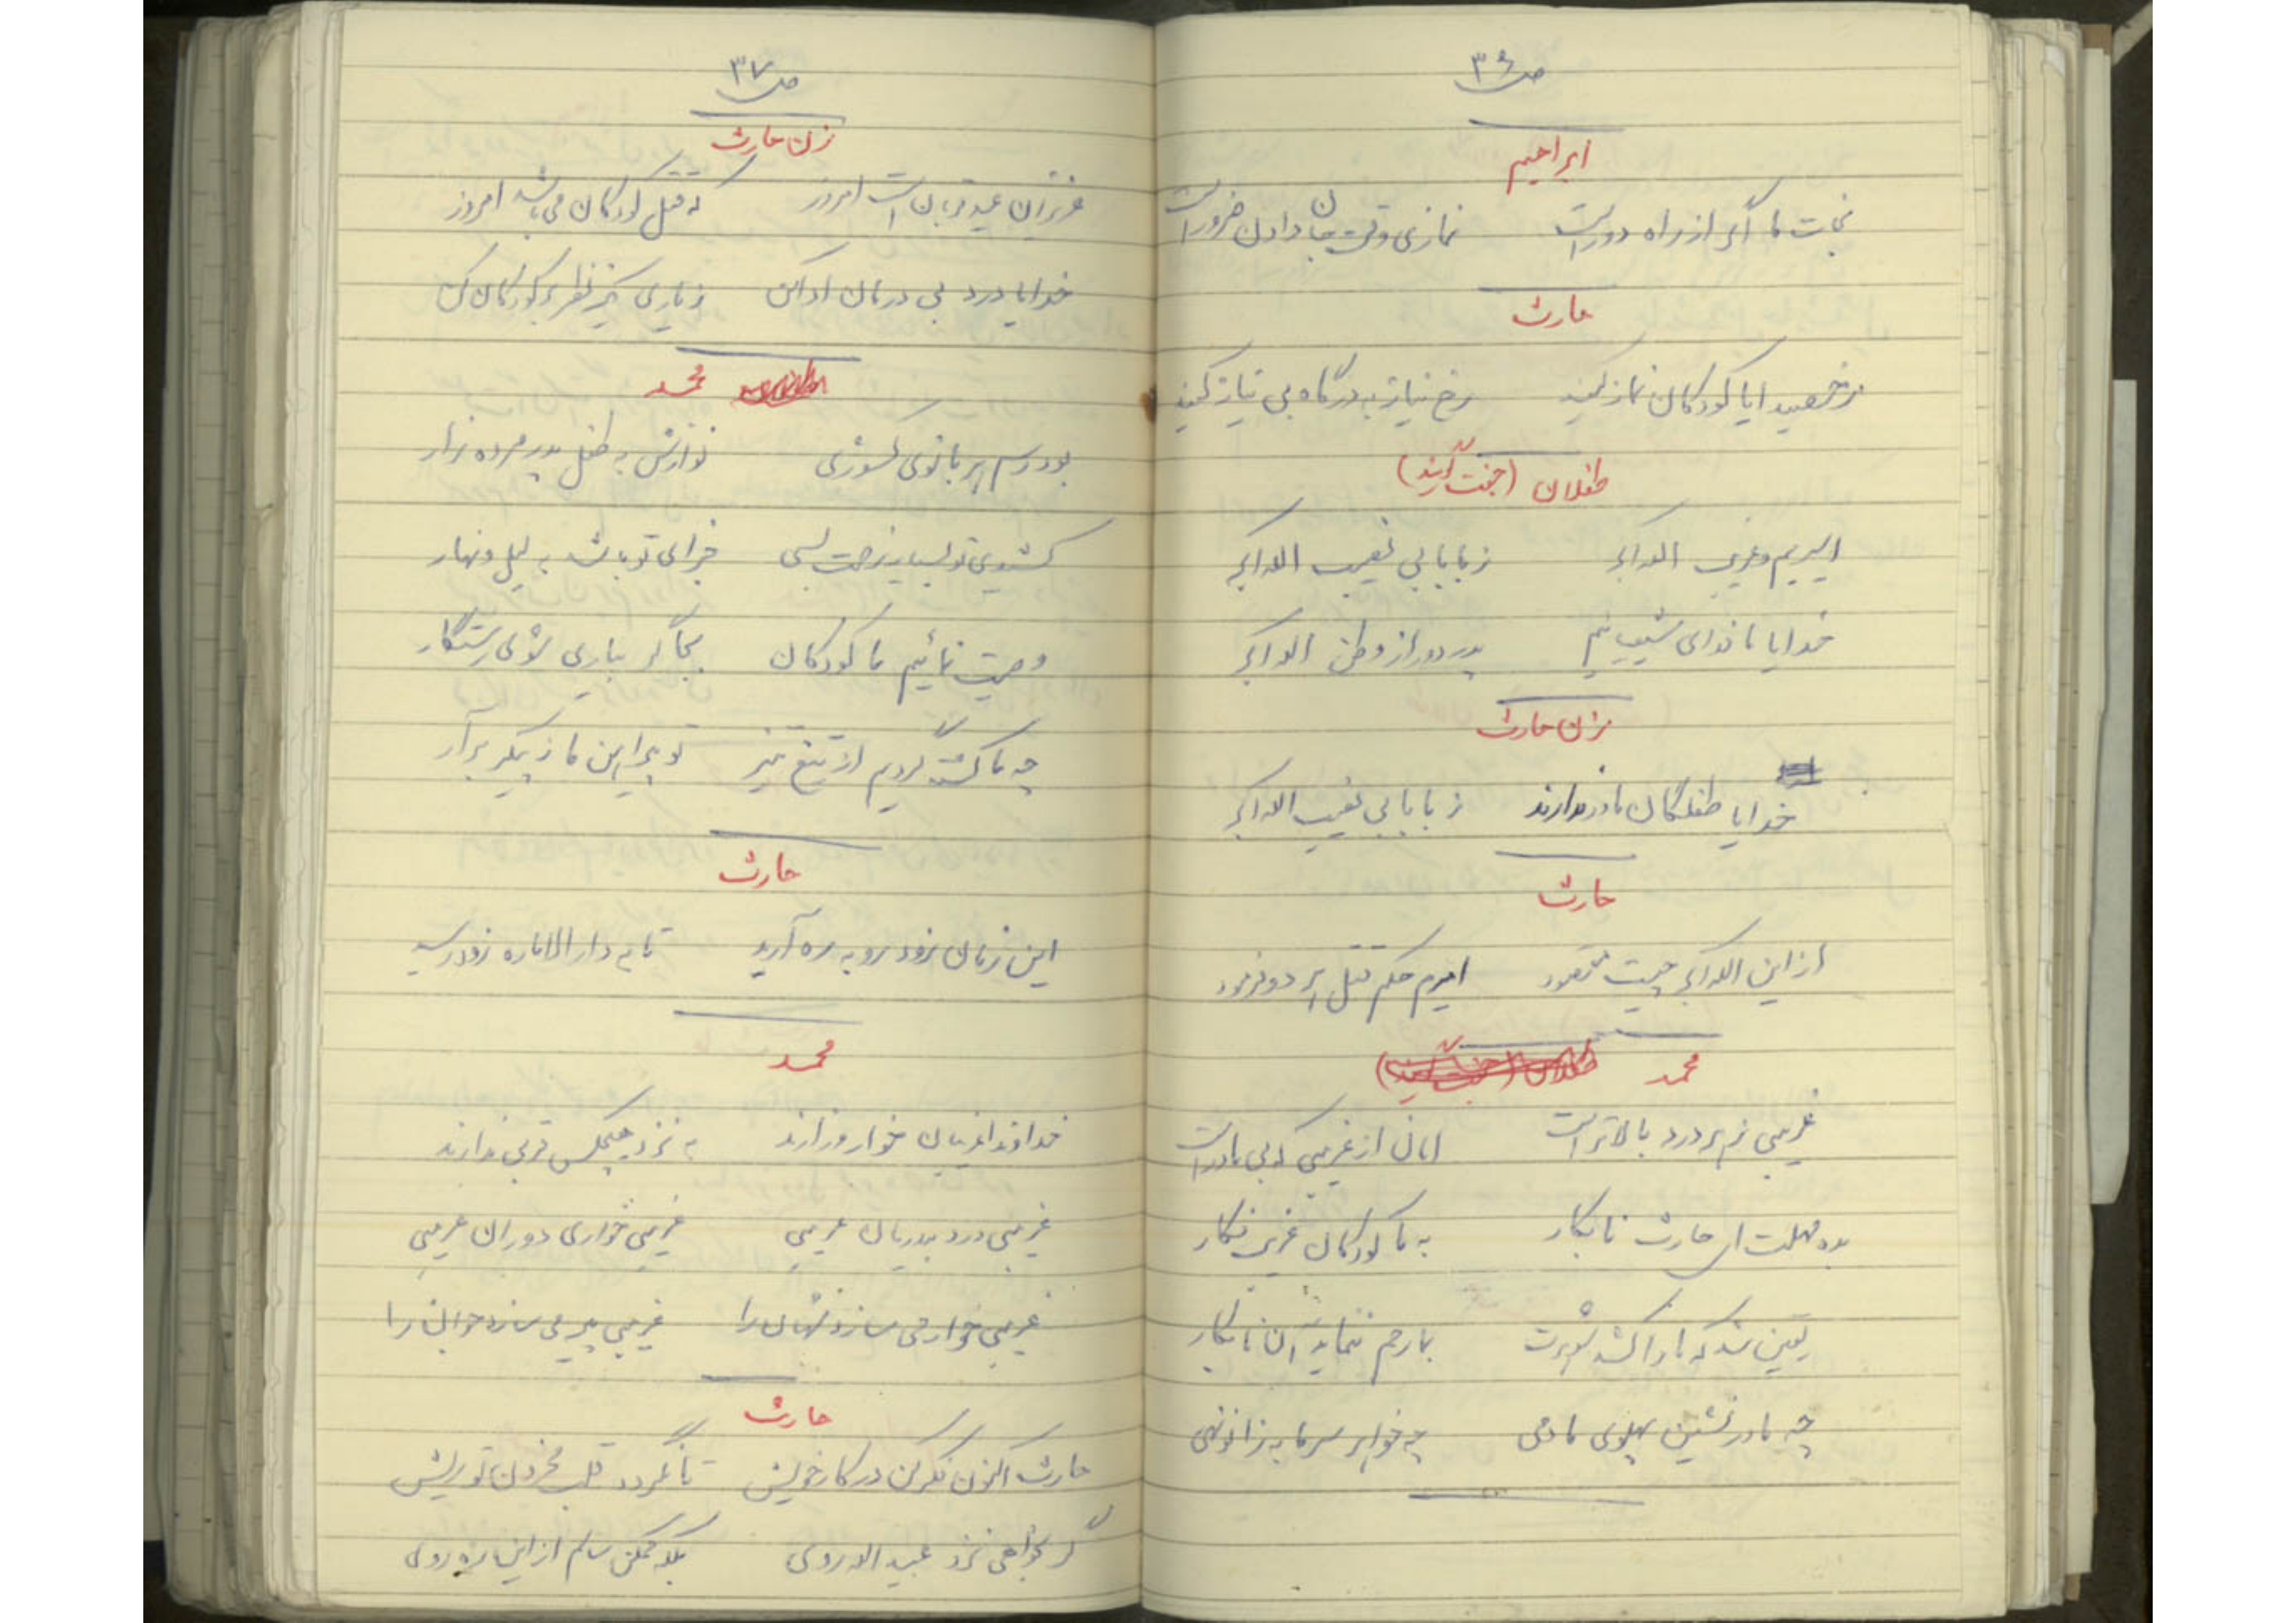 ص ۳۶
ابراهیم
نجات ما اگر از راه دور است نمازی وقت جان دادن ضرور است
حارث
مرخصید ایا کودکان نماز کنید رخ نیاز به درگاه بی نیاز کنید
طفلان (جفت آیند)
اسیریم و غریب الله اکبر ز بابا بی نصیب الله اکبر
خدایا ما فدای شیعیانیم پدر دور از وطن الله اکبر
زن حارث
خدایا طفلکان مادر ندارند ز بابا بی نصیب الله اکبر
حارث
از این الله اکبر چیست مقصود امیرم حکم قتل هر دو فرمود
محمد
غریبی ز هر درد بالاتر است امان از غریبی که بی مادر است
بده مهلت ای حارث نابکار به ما کودکان غریب فکار
یقین شد که ما را کشد شوهرت بما رحم ننماید آن نابکار
چه مادر نشین پهلوی ما دمی چه خواهر سر ما به زانو نهی
ص ۳۷
زن حارث
عزیزان عید قربان است امروز که قتل کودکان می باشد امروز
خدایا درد بی درمان دوا کن ز یاری نظر بر کودکان کن
محمد
بود رسم هر بانوی نوازش به طفل پدر مرده زار
کشیدی تو بسیار زحمت بسی جزای تو باشد به لیل و نهار
وصیت نمائیم ما کودکان بجا گر بیاری شوی رستگار
چه ما کشته گردیم از تیغ تیز تو پیراهن ما ز پیکر برآر
حارث
این زمان زود رو به ره آرید تا به دار الاماره زود رسید
محمد
خداوندا غریبان خوار و زارند به نزد هیچکس قربی ندارند
غریبی درد بی درمان غریبی غریبی خواری دوران غریبی
غریبی خوار می سازد شهان را غریبی پیر می سازد جوان را
حارث
حارث اکنون فکر کن در کار خویش تا نگردد قلب محزون تو ریش
گر بخواهی نزد عبید الله روی بلکه ممکن سالم از این ره روی